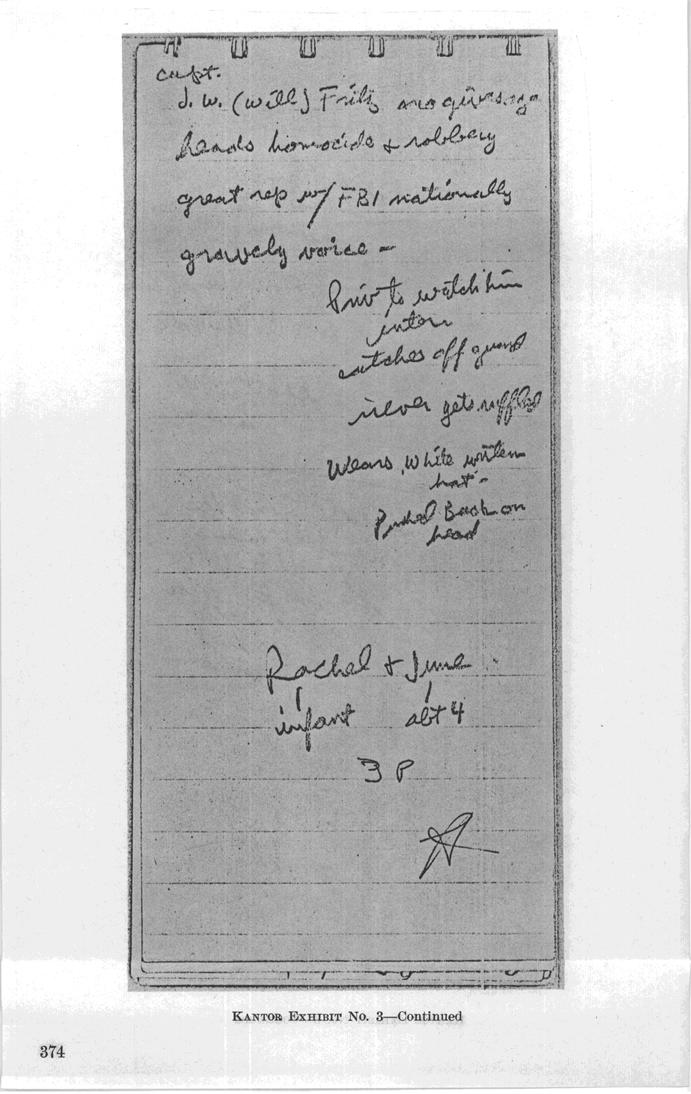 capt.
J. W. (Will) Fritz
heads homocide & robbery
great rep w/ FBI nationally
gravely voice -
Priv to watch him
interr
catches off guard
never gets ruffled
Wears White western
hat -
Pushed Back on
head
Rachel & June
infant abt 4
3 P
KANTOR EXHIBIT No. 3—Continued
374